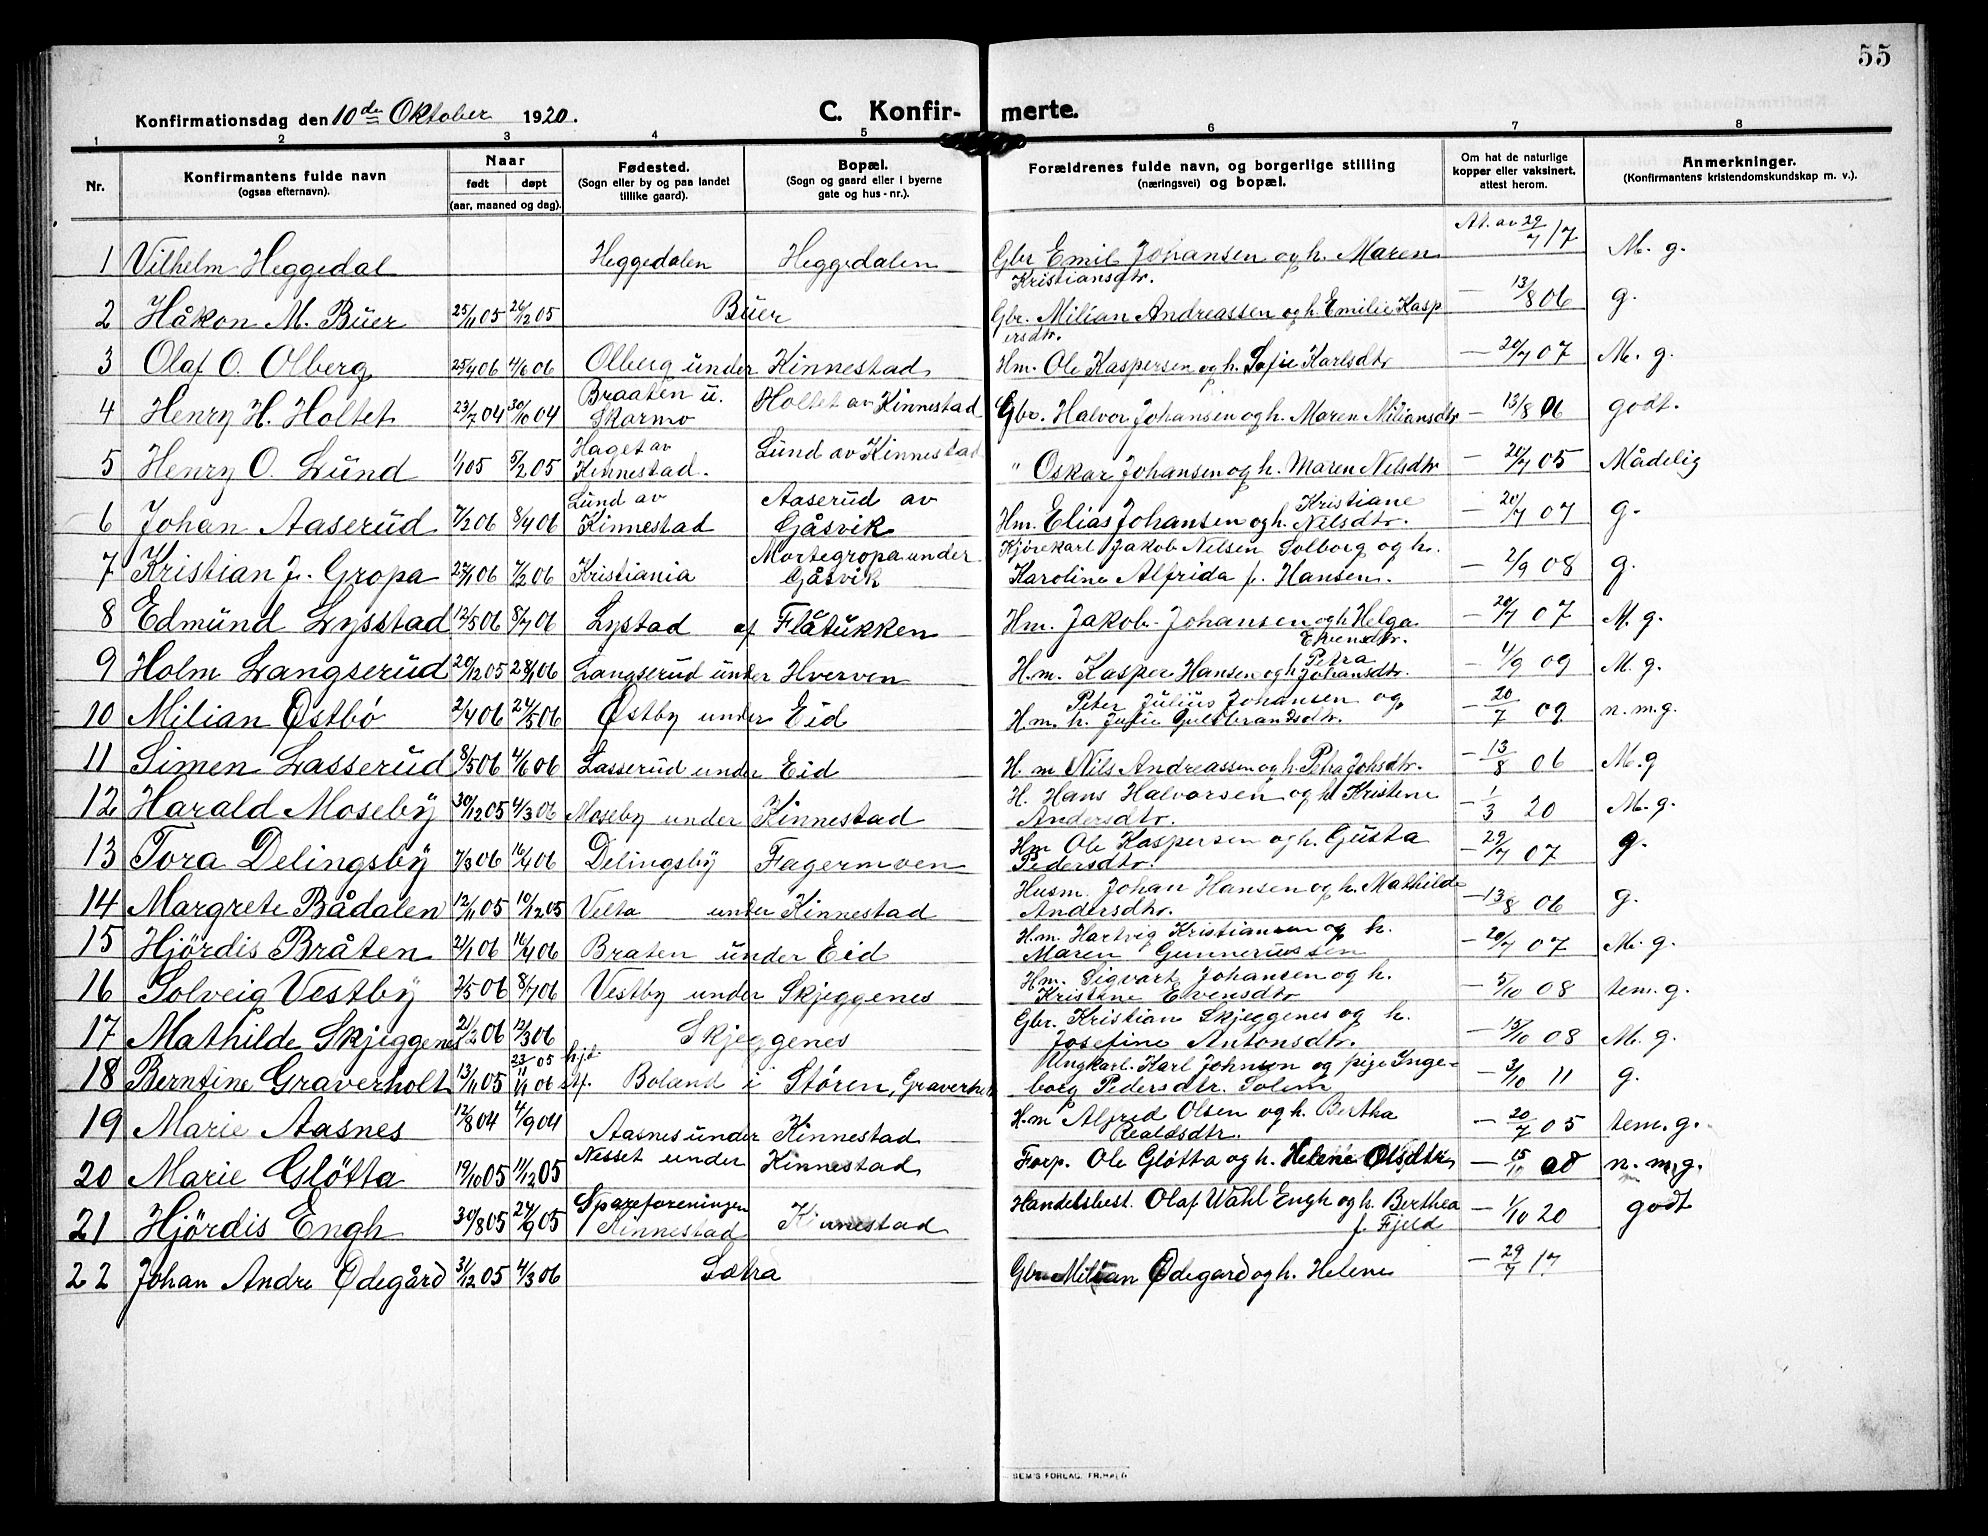 55
Konfirmationsdag den 10de Oktober 1920.
C. Konfir- merte.
1 2 3 4 5 6 7 8
Nr.
Konfirmantens fulde navn (ogsaa efternavn).
Naar født døpt (aar, maaned og dag).
Fødested. (Sogn eller by og paa landet tillike gaard).
Bopæl. (Sogn og gaard eller i byerne gate og hus-nr.).
Forældrenes fulde navn, og borgerlige stilling (næringsvei) og bopæl.
Om hat de naturlige kopper eller vaksinert, attest herom.
Anmerkninger. (Konfirmantens kristendomskundskap m. v.).
1 Vilhelm Heggedal Heggedalen Heggedalen Gbr Emil Johansen og h. Maren Kristiansdtr. At. av 29/7 17 M. g.
2 Håkon M. Büer 25/11 05 26/12 05 Büer Gbr. Milian Andreassen og h. Emilie Kaspersdtr. — 13/8 06 g.
3 Olaf O. Olberg 25/4 06 4/6 06 Olberg under Kinnestad Hm. Ole Kaspersen og h. Sofie Karlsdtr — 20/7 07 M. g.
4 Henry H. Holtet 23/7 04 30/10 04 Braaten u. Skarmo Holtet av Kinnestad Gbr. Halvor Johansen og h. Maren Miliansdtr — 13/8 06 godt.
5 Henry O. Lünd 1/1 05 5/2 05 Haget av Kinnestad. Lünd av Kinnestad " Oskar Johansen og h. Maren Nilsdtr — 20/7 05 Mådelig
6 Johan Aaserüd 7/2 06 8/4 06 Lünd av Kinnestad Aaserüd av Gåsvik Hm. Elias Johansen og h. Kristiane Nilsdtr. — 20/7 07 g.
7 Kristian J. Gropa 22/1 06 7/2 06 Kristiania Mortegropa under Gåsvik Kjørekarl Jakob Nilsen Solborg og h. Karoline Alfrida f. Hansen. — 2/9 08 g.
8 Edmünd Lysstad 12/5 06 8/7 06 Lystad af Flåtükken Hm. Jakob Johansen og h Helga Evensdtr. — 20/7 07 M. g.
9 Holm Langserüd 20/12 05 28/1 06 Langserüd ünder Hverven H.m. Kasper Hansen og h Petra Johansdtr. — 4/9 09 M. g.
10 Milian Østbö 2/4 06 24/5 06 Østby under Eid H.m. Peter Julius Johansen og h. Julie Gulbrandsdtr. — 20/7 09 n. m. g.
11 Simen Lasserüd 8/5 06 4/6 06 Lasserüd under Eid H. m Nils Andreassen og h. Petra Johsdtr. — 13/8 06 M. g
12 Harald Moseby 30/12 05 4/3 06 Moseby under Kinnestad H. Hans Halvorsen og h Kristine Andersdtr. — 1/3 20 M. g.
13 Tora Delingsby 7/3 06 16/4 06 Delingsby Fagermoen Hm Ole Kaspersen og h. Güsta Pedersdtr. — 29/7 07 g.
14 Margrete Bådalen 12/11 05 10/12 05 Velta under Kinnestad Husm. Johan Hansen og h. Mathilde Andersdtr. — 13/8 06 g.
15 Hjördis Bråten 21/1 06 16/4 06 Braten ünder Eid H.m. Hartvig Kristiansen og h. Maren Gunneriussen — 20/7 07 M. g.
16 Solveig Vestby 2/5 06 8/7 06 Vestby under Skjeggenes Hm. Sigvart Johansen og h. Kristine Evensdtr — 5/10 08 tem. g.
17 Mathilde Skjeggenes 21/2 06 12/3 06 Skjeggenes Gbr. Kristian Skjeggenes og h. Josefine Antonsdtr. — 15/10 08 M. g.
18 Berntine Graverholt 13/11 05 23/11 05 hjd. 1/1 06 stf. Boland i Støren, Graverholt Ungkarl. Karl Johnsen og pige Ingeborg Pedersdtr. Solem — 3/10 11 g.
19 Marie Aasnes 12/8 04 4/9 04 Aasnes under Kinnestad H.m Alfred Olsen og h. Bertha — 20/7 05 tem. g.
20 Marie Glötta 19/10 05 11/12 05 Nesset under Kinnestad Forp. Ole Glötta og h. Helene Olsdtr — 15/10 08 n. m. g.
21 Hjördis Engh 30/8 05 24/9 05 Spareforeningen Kinnestad Kinnestad Handelsbest. Olaf Wahl Engh og h. Berthea f. Fjeld — 1/10 20 godt
22 Johan Andre Ødegård 31/12 05 4/3 06 Sætra Gbr Milian Ødegard og h. Helene — 29/7 17
SEM'S FORLAG. FR.HALD